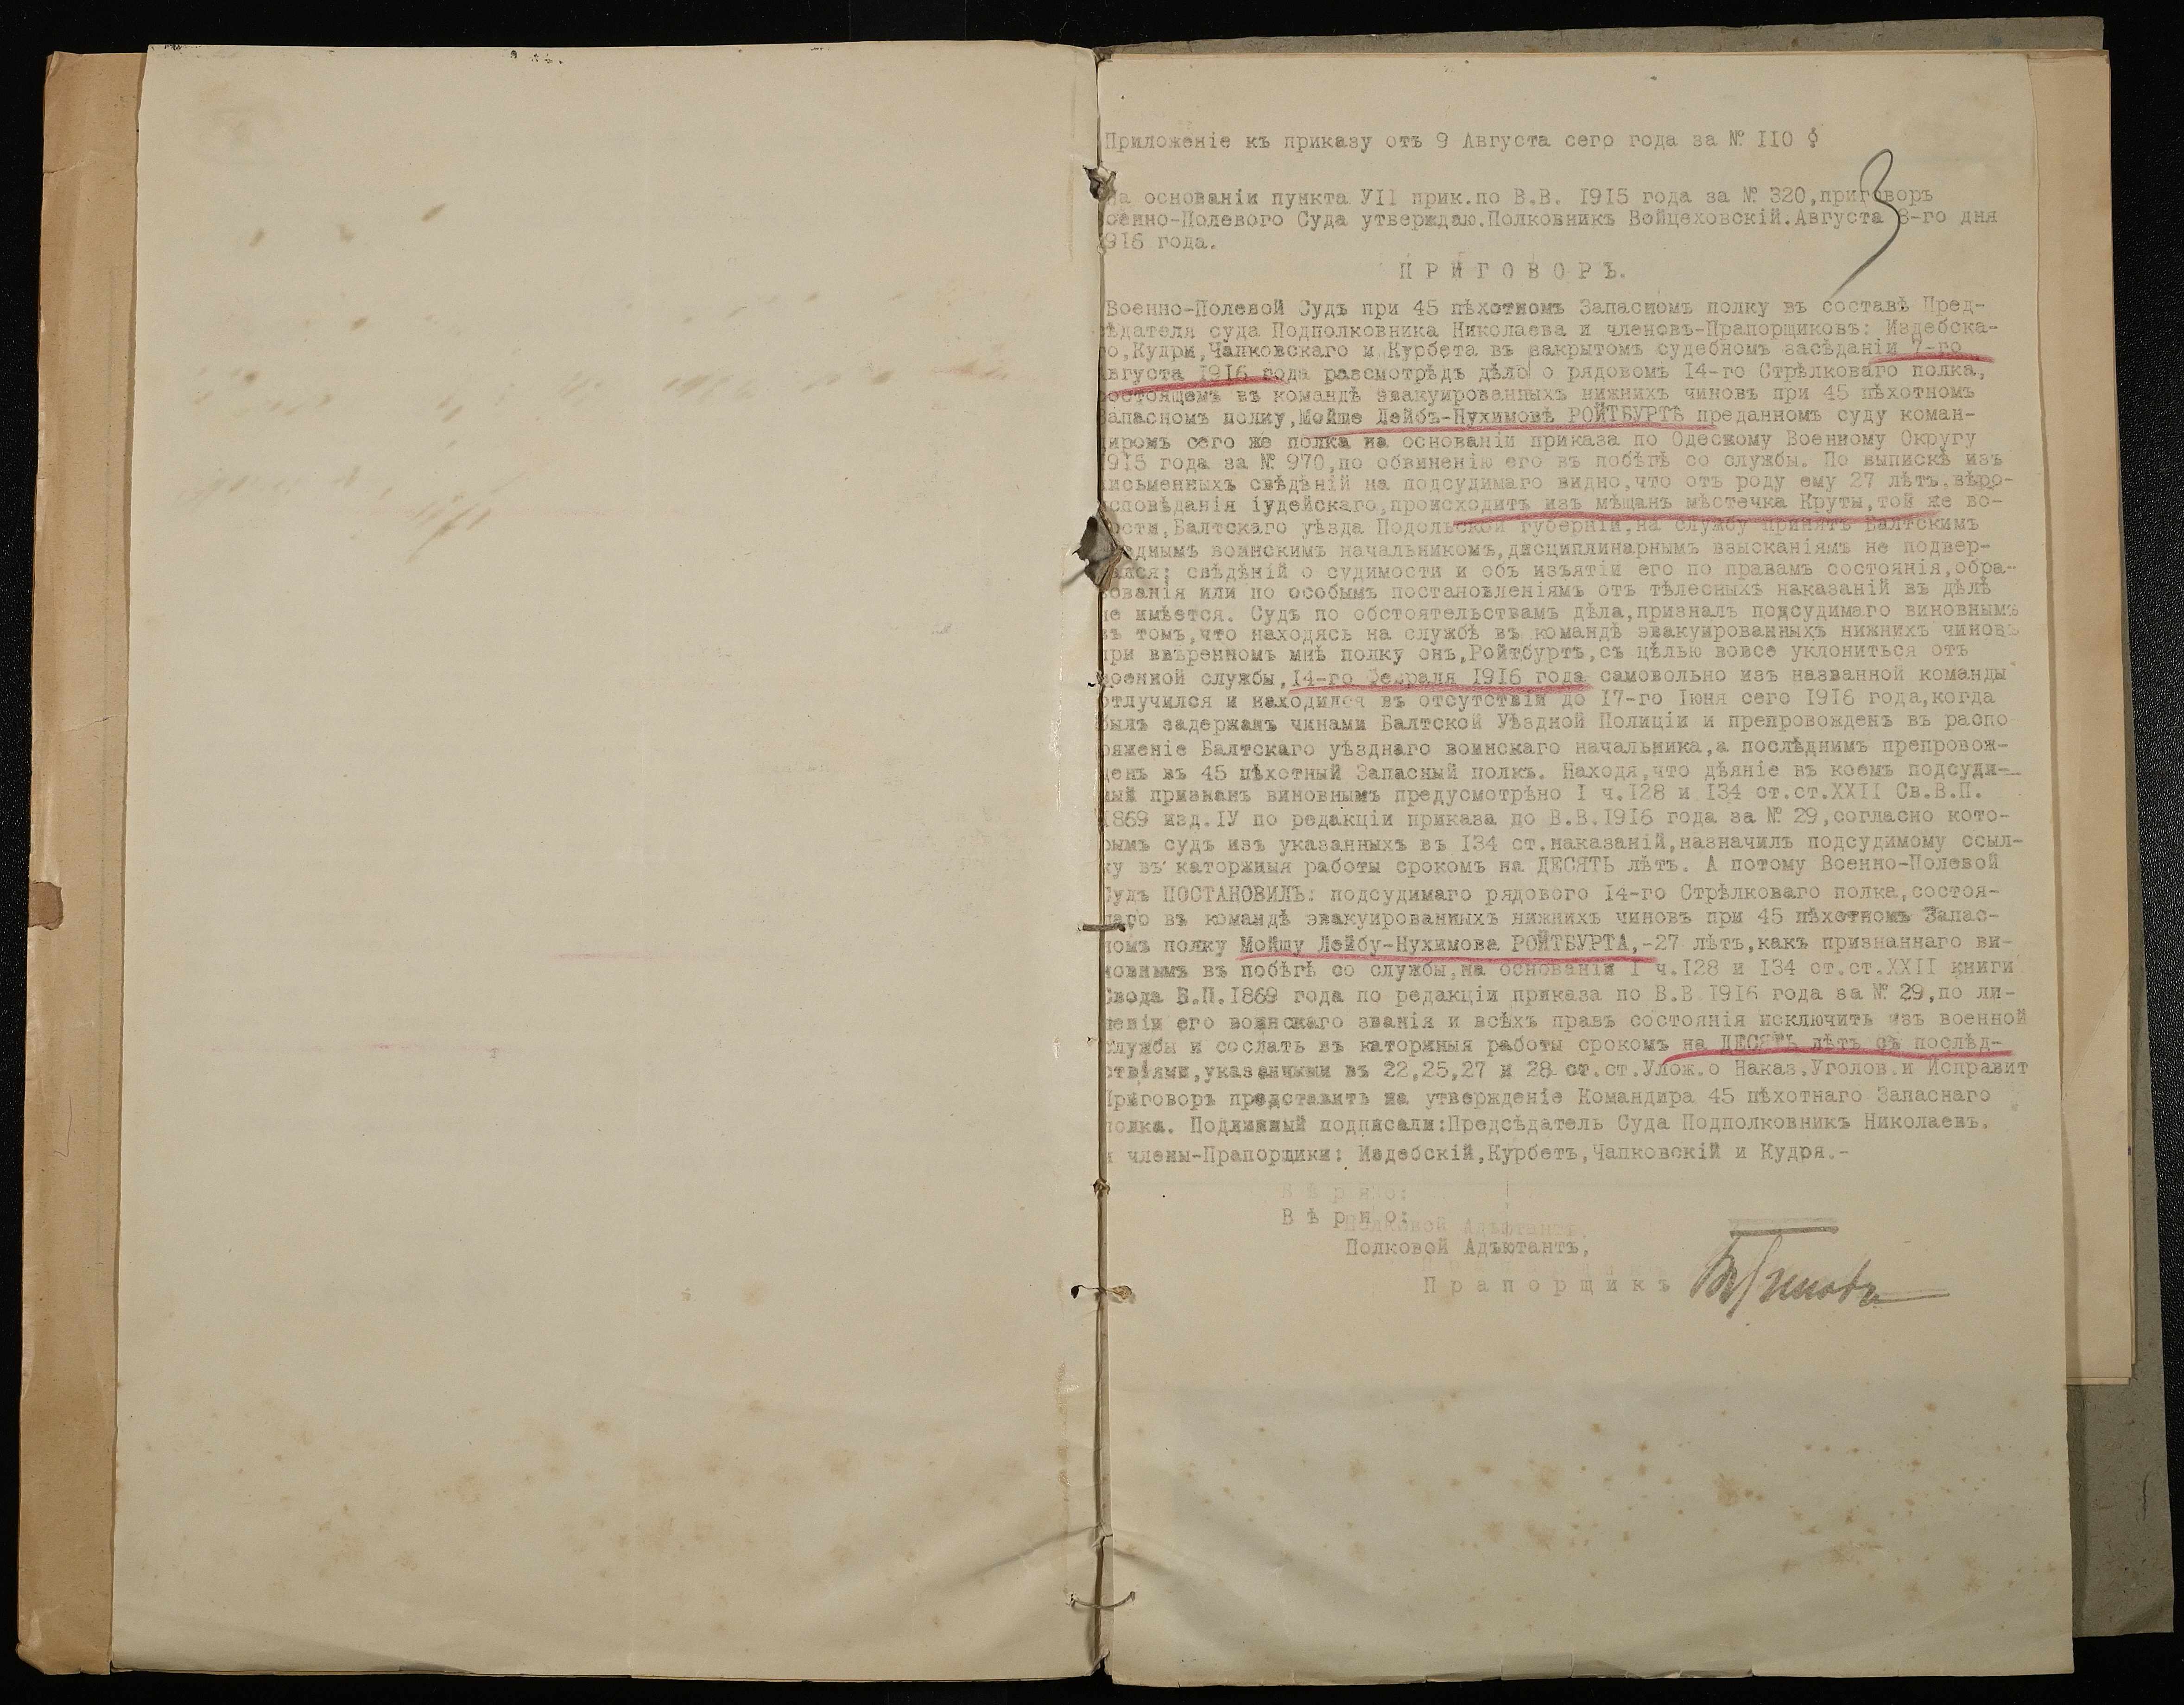 Приложеніе къ приказу отъ 9 Августа сего года за № 110 §
3
на основаніи пункта УІІ прик.по В.В. 1915 года за № 320,приговоръ
оенно-Полевого Суда утверждаю.Полковникъ Войцеховскій.Августа 8-го дня
916 года.
П Р И Г О В О Р Ъ.
Военно-Полевой Судъ при 45 пѣхотномъ Запасномъ полку въ составѣ Пред-
сѣдателя суда Подполковника Николаева и членовъ-Прапорщиковъ: Издебска-
го,Кудри,Чапковскаго и Курбета въ закрытомъ судебномъ засѣданіи 7-го
Августа 1916 года разсмотрѣдъ дѣло о рядовомъ 14-го Стрѣлковаго полка,
состоящемъ въ командѣ эвакуированныхъ нижнихъ чиновъ при 45 пѣхотномъ
Запасномъ полку,Мойше Лейбъ-Нухимовѣ РОЙТБУРТѢ преданномъ суду коман-
диромъ сего же полка на основаніи приказа по Одесскому Военному Округу
915 года за № 970,по обвиненію его въ побѣгѣ со службы. По выпискѣ изъ
письменныхъ свѣдѣній на подсудимаго видно,что отъ роду ему 27 лѣтъ,вѣро-
исповѣданія іудейскаго,происходитъ изъ мѣщанъ мѣстечка Круты,той же во-
лости,Балтскаго уѣзда Подольской губерніи,на службу принятъ Балтскимъ
ѣзднымъ воинскимъ начальникомъ,дисциплинарнымъ взысканіямъ не подвер-
гался; свѣдѣній о судимости и объ изъятіи его по правамъ состоянія,обра-
зованія или по особымъ постановленіямъ отъ тѣлесныхъ наказаній въ дѣлѣ
не имѣется. Судъ по обстоятельствамъ дѣла,призналъ подсудимаго виновнымъ
въ томъ,что находясь на службѣ въ командѣ эвакуированныхъ нижнихъ чиновъ
при ввѣренномъ мнѣ полку онъ,Ройтбуртъ,съ цѣлью вовсе уклониться отъ
военной службы,14-го Февраля 1916 года самовольно изъ названной команды
отлучился и находился въ отсутствіи до 17-го Іюня сего 1916 года,когда
былъ задержанъ чинами Балтской Уѣздной Полиціи и препровожденъ въ распо
ряженіе Балтскаго уѣзднаго воинскаго начальника,а послѣднимъ препровож-
денъ въ 45 пѣхотный Запасный полкъ. Находя,что дѣяніе въ коемъ подсуди-
мый признанъ виновнымъ предусмотрѣно І ч.128 и 134 ст.ст.XXII Св.В.П.
1869 изд.ІУ по редакціи приказа по В.В.1916 года за № 29,согласно кото-
рымъ судъ изъ указанныхъ въ 134 ст.наказаній,назначилъ подсудимому ссыл-
ку въ каторжныя работы срокомъ на ДЕСЯТЬ лѣтъ. А потому Военно-Полевой
Судъ ПОСТАНОВИЛЪ: подсудимаго рядового 14-го Стрѣлковаго полка,состоя-
щаго въ командѣ эвакуированныхъ нижнихъ чиновъ при 45 пѣхотномъ Запас-
номъ полку Мойшу Лейбу-Нухимова РОЙТБУРТА,-27 лѣтъ,какъ признаннаго ви-
новнымъ въ побѣгѣ со службы,на основаніи І ч.128 и 134 ст.ст.XXII книги
Свода В.П.1869 года по редакціи приказа по В.В 1916 года за № 29,по ли-
шеніи его воинскаго званія и всѣхъ правъ состоянія исключить изъ военной
службы и сослать въ каторжныя работы срокомъ на ДЕСЯТЬ лѣтъ съ послѣд-
ствіями,указанными въ 22,25,27 и 28 ст.ст.Улож.о Наказ.Уголов.и Исправит
Приговоръ представить на утвержденіе Командира 45 пѣхотнаго Запаснаго
полка. Подлинный подписали:Предсѣдатель Суда Подполковникъ Николаевъ,
и члены-Прапорщики: Издебскій,Курбетъ,Чапковскій и Кудря.-
В ѣ р н о:
Полковой Адъютантъ,
П р а п о р щ и к ъ